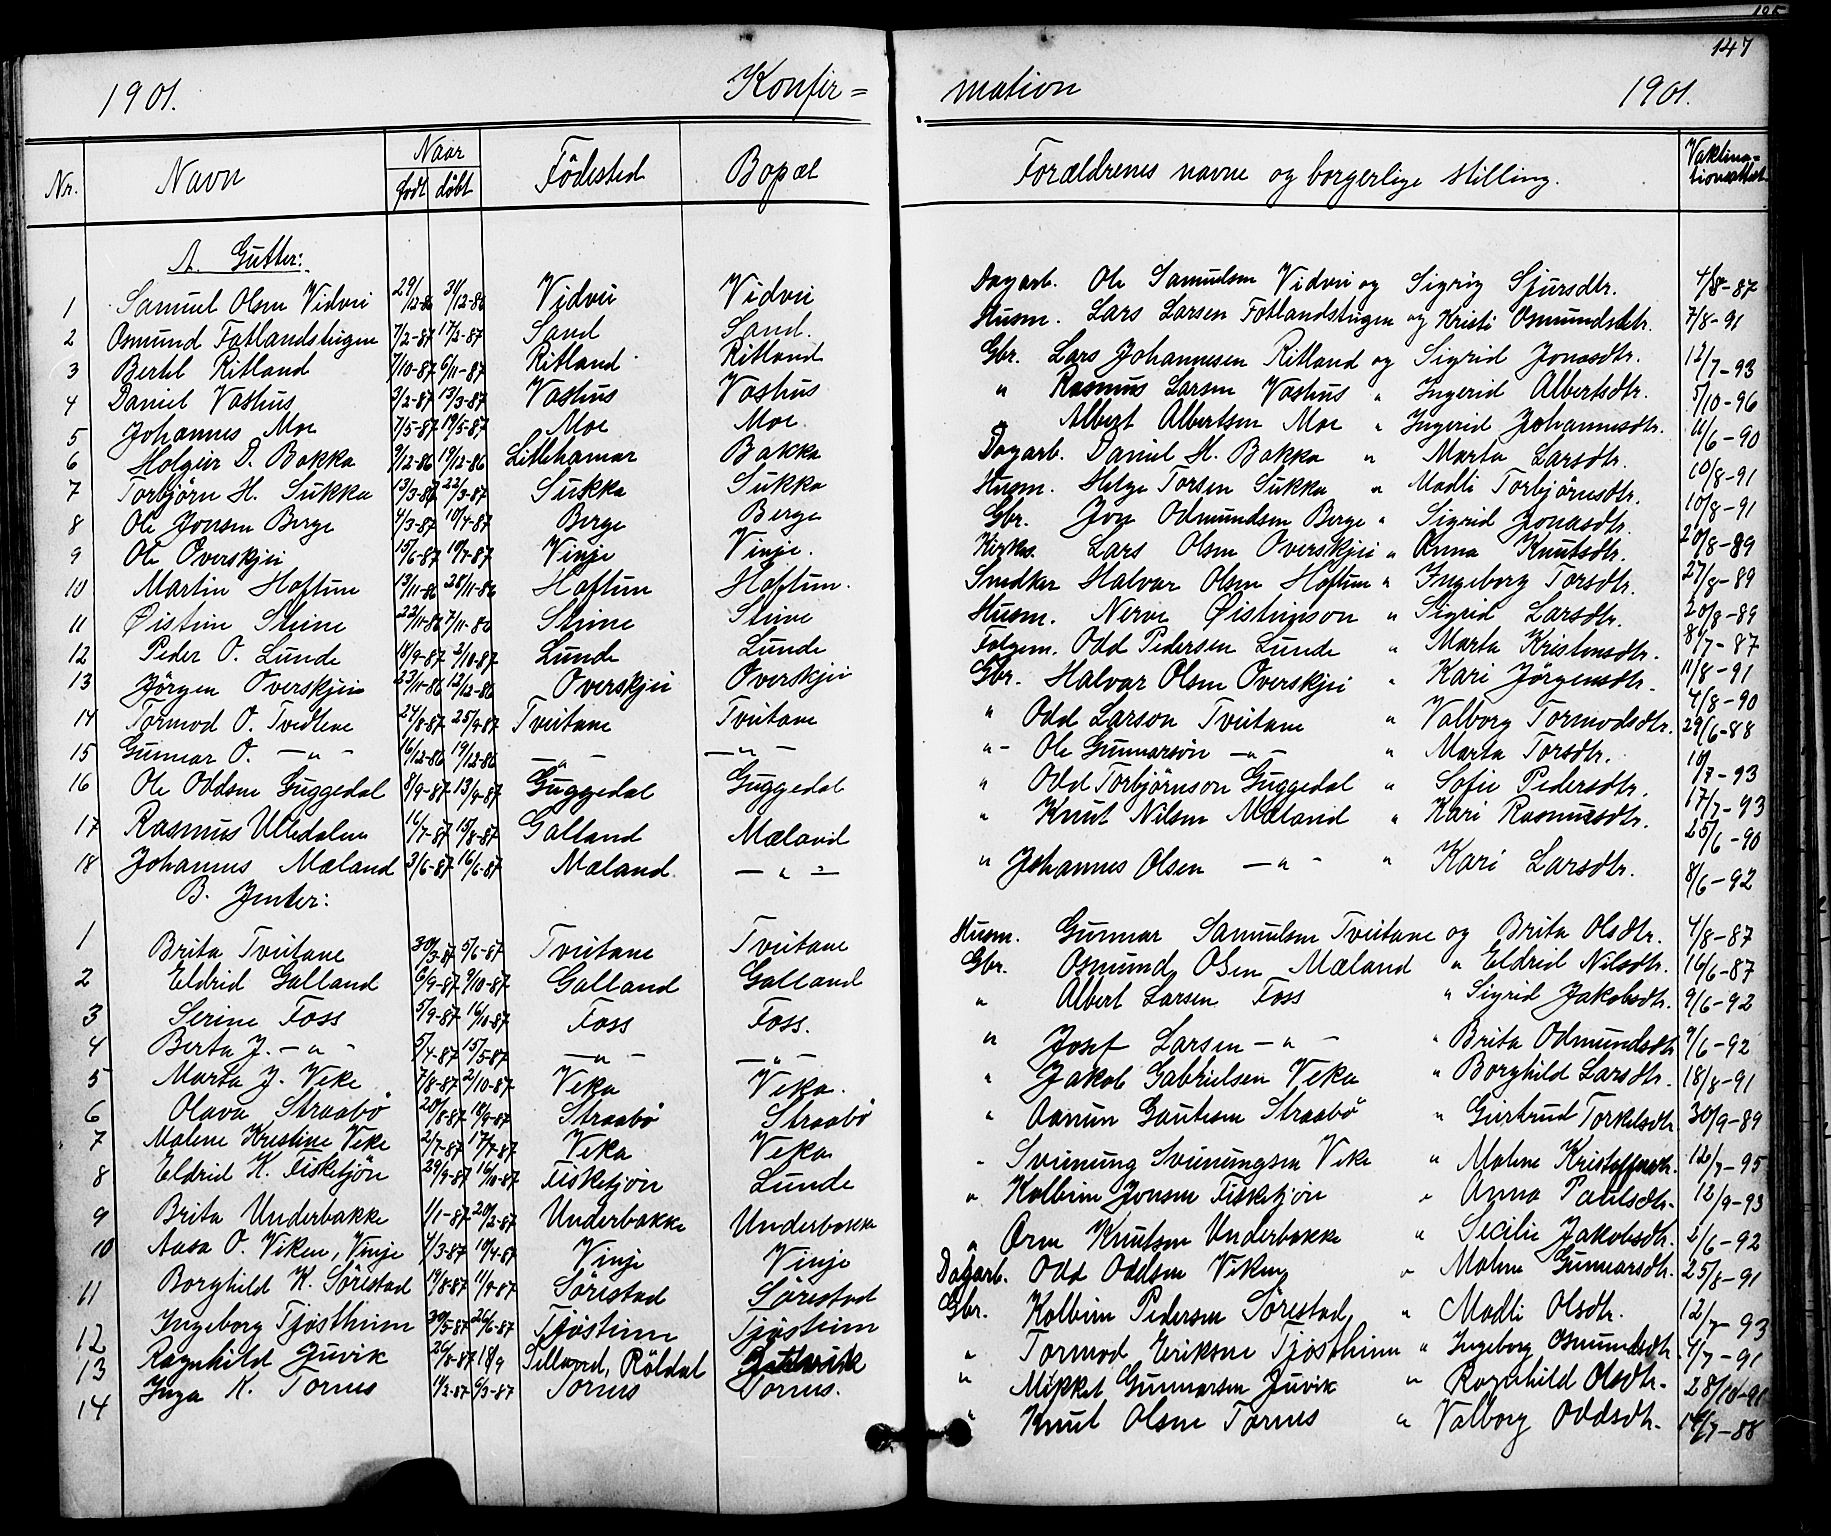 147
1901. Konfir= mation 1901.
Nr. Navn Naar födt döbt Födested Bopæl Forældrenes navne og borgerlige stilling. Vaktina=tionsattest
A. Gutter:
1 Samuel Olsen Vidvei 29/12-86 31/12-86 Vidvei Vidvei Dagarb. Ole Samuelsen Vidvei og Sigrig Sjursdtr. 4/8-87
2 Osmund Fatlandstrigen 7/2-87 17/2-87 Sand Sand. Husm. Lars Larsen Fotlandstrigen og Kristi Osmundsdtr. 7/8-91
3 Bertel Ritland 7/10-87 6/11-87 Ritland Ritland Gbr. Lars Johannesen Ritland og Sigrid Jonasdtr. 12/7-93
4 Daniel Vashus 3/2-87 13/3-87 Vashus Vashus " Rasmus Larsen Vashus " Ingerid Albertsdtr. 5/10-96
5 Johannes Moe 7/5-87 19/5-87 Moe Moe. Albert Albertsen Moe " Ingerid Johannesdtr. 11/6-90
6 Holgeir D. Bakka 9/12-86 19/12-86 Lillehamar Bakka Dagarb. Daniel H. Bakka " Marta Larsdtr. 10/8-91
7 Torbjörn H. Sukka 13/3-87 22/3-87 Sukka Sukka Husm. Helge Torsen Sukka " Madli Torbjörnsdtr. 10/8-91
8 Ole Jonsen Berge 4/3-87 10/4-87 Berge Berge Gbr. Jon Odmundsen Berge " Sigrid Jonasdtr. 20/8-89
9 Ole Overskjei 15/6-87 10/7-87 Vinje Vinje. Kirks. Lars Olsen Overskjei " Anna Knutsdtr. 27/8-89
10 Martin Hoftun 13/11-86 28/11-86 Hoftun Hoftun. Snedkar Halvar Olsen Hoftun " Ingeborg Torsdtr. 20/8-89
11 Øistein Steine 22/10-86 7/11-86 Steine Steine Husm. Nerve Øisteinson " Sigrid Larsdtr. 8/7-87
12 Peder O. Lunde 18/9-87 2/10-87 Lunde Lunde Folgem. Odd Pedersen Lunde " Marta Kristensdtr. 11/8-91
13 Jörgen Overskjei 23/11-86 12/12-86 Overskjei Overskjei Gbr. Halvar Olsen Overskjei " Kari Jörgensdtr. 4/8-90
14 Tormod O. Tveitene 24/8-87 25/9-87 Tveitane Tveitane " Odd Larson Tveitane " Valborg Tormodsdtr. 29/6-88
15 Gunnar O. — " - 16/12-86 19/12-86 — " - — " - " - Ole Gunnarsön — " - " Marta Torsdtr. 10/7-93
16 Ole Oddsen Guggedal 8/9-87 13/9-87 Guggedal Guggedal " Odd Torbjörnson Guggedal " Sofie Pedersdtr. 17/7-93
17 Rasmus Ulledalen 16/7-87 15/8-87 Galland Mæland " Knut Nilsen Mæland " Kari Rasmusdtr. 25/6-90
18 Johannes Mæland 3/6-87 16/6-87 Mæland. — " - " Johannes Olsen — " - " Kari Larsdtr. 8/6-92
B. Jenter:
1 Brita Tveitane 30/3-87 5/6-87 Tveitane Tveitane Husm. Gunnar Samuelsen Tveitane og Brita Olsdtr. 4/8-87
2 Eldrid Galland 6/9-87 9/10-87 Galland Galland Gbr. Osmund Olsen Mæland " Eldrid Nilsdtr. 16/6-87
3 Serine Foss 5/9-87 16/10-87 Foss Foss. " Albert Larsen Foss " Sigrid Jakobsdtr. 9/6-92
4 Berta J. — " - 5/4-87 15/5-87 — " - — " - " Josef Larsen — " - " Brita Odmundsdtr 9/6-92
5 Marta J. Veke 7/8-87 2/10-87 Veka Veka. " Jakob Gabrielsen Veka " Borghild Larsdtr. 18/8-91
6 Olava Straabö 20/8-87 18/9-87 Straabö Straabö " Aanun Gautesen Straabö " Gurtrud Torkelsdtr. 30/9-89
7 Malene Kristine Veke 2/7-87 17/7-87 Veka Veka " Sveinung Sveinungsen Veke " Malene Kristoffersdtr. 12/7-95
8 Eldrid K. Fisketjön 29/9-87 16/10-87 Fisketjön Lunde " Kolbein Jonsen Fisketjön " Anna Paulsdtr. 12/9-93
9 Brita Underbakke 1/1-87 20/2-87 Underbakke Underbakke " Orm Knutsen Underbakke " Secilie Jakobsdtr. 2/6-92
10 Aasa O. Viken, Vinje 4/3-87 10/4-87 Vinje Vinje Dagarb. Odd Oddsen Viken " Malene Gunnarsdtr. 25/8-91
11 Borghild K. Sörestad 19/8-87 11/9-87 Sörestad Sörestad Gbr. Kolbein Pedersen Sörestad " Madli Olsdtr. 12/7-93
12 Ingeborg Tjöstheim 30/5-87 26/6-87 Tjösteim Tjösteim " Tormod Eriksen Tjöstheim " Ingeborg Osmundsdtr. 4/7-91
13 Ragnhild Juvik 26/8-87 18/9 Röldal " Mikkel Gunnarsen Juvik " Ragnhild Olsdtr. 28/10-91
14 Inga K. Tornes 11/2-87 6/3-87 Tornes Tornes. " Knut Olsen Tornes " Valborg Oddsdtr. 14/7-88